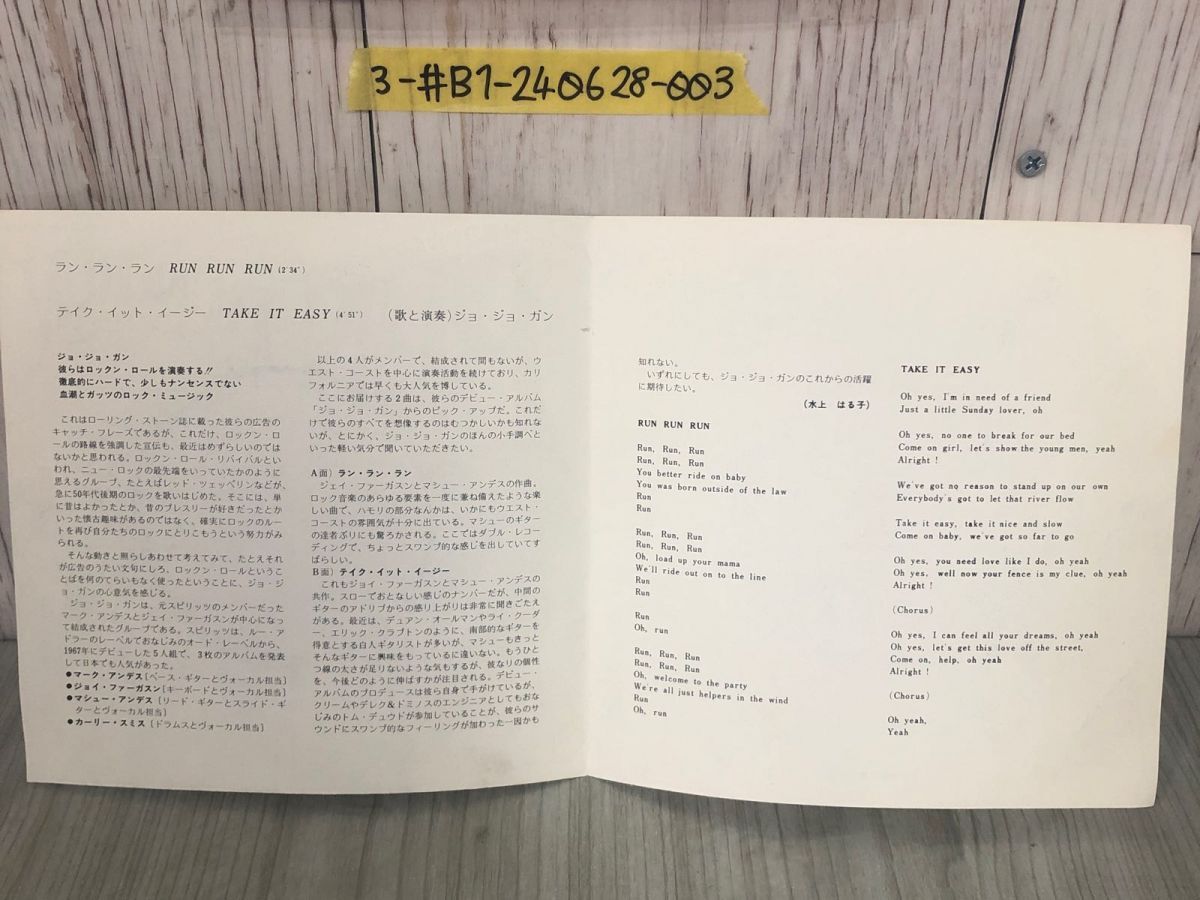 3-#B1-240628-003
ラン・ラン・ラン RUN RUN RUN (2'34")
テイク・イット・イージー TAKE IT EASY (4'51") (歌と演奏)ジョ・ジョ・ガン
ジョ・ジョ・ガン
彼らはロックン・ロールを演奏する!!
徹底的にハードで、少しもナンセンスでない
血潮とガッツのロック・ミュージック
これはローリング・ストーン誌に載った彼らの広告の
キャッチ・フレーズであるが、これだけ、ロックン・ロ
ールの路線を強調した宣伝も、最近はめずらしいのでは
ないかと思われる。ロックン・ロール・リバイバルとい
われ、ニュー・ロックの最先端をいっていたかのように
思えるグループ、たとえばレッド・ツェッペリンなどが、
急に50年代後期のロックを歌いはじめた。そこには、単
に昔はよかったとか、昔のプレスリーが好きだったとか
いった懐古趣味があるのではなく、確実にロックのルー
トを再び自分たちのロックにとりこもうという努力がみ
られる。
そんな動きと照らしあわせて考えてみて、たとえそれ
が広告のうたい文句にしろ、ロックン・ロールというこ
とばを何のてらいもなく使ったということに、ジョ・ジ
ョ・ガンの心意気を感じる。
ジョ・ジョ・ガンは、元スピリッツのメンバーだった
マーク・アンデスとジェイ・ファーガスンが中心になっ
て結成されたグループである。スピリッツは、ルー・ア
ドラーのレーベルでおなじみのオード・レーベルから、
1967年にデビューした5人組で、3枚のアルバムを発表
して日本でも人気があった。
●マーク・アンデス[ベース・ギターとヴォーカル担当]
●ジョイ・ファーガスン[キーボードとヴォーカル担当]
●マシュー・アンデス[リード・ギターとスライド・ギ
ターとヴォーカル担当]
●カーリー・スミス[ドラムスとヴォーカル担当]
以上の4人がメンバーで、結成されて間もないが、ウ
エスト・コーストを中心に演奏活動を続けており、カリ
フォルニアでは早くも大人気を博している。
ここにお届けする2曲は、彼らのデビュー・アルバム
「ジョ・ジョ・ガン」からのピック・アップだ。これだ
けで彼らのすべてを想像するのはむつかしいかも知れな
いが、とにかく、ジョ・ジョ・ガンのほんの小手調べと
いった軽い気分で聞いていただきたい。
A面)ラン・ラン・ラン
ジェイ・ファーガスンとマシュー・アンデスの作曲。
ロック音楽のあらゆる要素を一度に兼ね備えたような楽
しい曲で、ハモリの部分なんかは、いかにもウエスト・
コーストの雰囲気が十分に出ている。マシューのギター
の達者ぶりにも驚ろかされる。ここではダブル・レコー
ディングで、ちょっとスワンプ的な感じを出していてす
ばらしい。
B面)テイク・イット・イージー
これもジョイ・ファーガスンとマシュー・アンデスの
共作。スローでおとなしい感じのナンバーだが、中間の
ギターのアドリブからの盛り上がりは非常に聞きごたえ
がある。最近は、デュアン・オールマンやライ・クーダ
ー、エリック・クラプトンのように、南部的なギターを
得意とする白人ギタリストが多いが、マシューもきっと
そんなギターに興味をもっているに違いない。もうひと
つ線の太さが足りないような気もするが、彼なりの個性
を、今後どのように伸ばすかが注目される。デビュー・
アルバムのプロデュースは彼ら自身で手がけているが、
クリームやデレク&ドミノスのエンジニアとしてもおな
じみのトム・デュウドが参加していることが、彼らのサ
ウンドにスワンプ的なフィーリングが加わった一因かも
知れない。
いずれにしても、ジョ・ジョ・ガンのこれからの活躍
に期待したい。
(水上 はる子)
RUN RUN RUN
Run, Run, Run
Run, Run, Run
You better ride on baby
You was born outside of the law
Run
Run
Run, Run, Run
Run, Run, Run
Oh, load up your mama
We'll ride out on to the line
Run
Run
Run
Oh, run
Run, Run, Run
Run, Run, Run
Oh, welcome to the party
We're all just helpers in the wind
Run
Oh, run
TAKE IT EASY
Oh yes, I'm in need of a friend
Just a little Sunday lover, oh
Oh yes, no one to break for our bed
Come on girl, let's show the young men, yeah
Alright !
We've got no reason to stand up on our own
Everybody's got to let that river flow
Take it easy, take it nice and slow
Come on baby, we've got so far to go
Oh yes, you need love like I do, oh yeah
Oh yes, well now your fence is my clue, oh yeah
Alright !
(Chorus)
Oh yes, I can feel all your dreams, oh yeah
Oh yes, let's get this love off the street,
Come on, help, oh yeah
Alright !
(Chorus)
Oh yeah,
Yeah